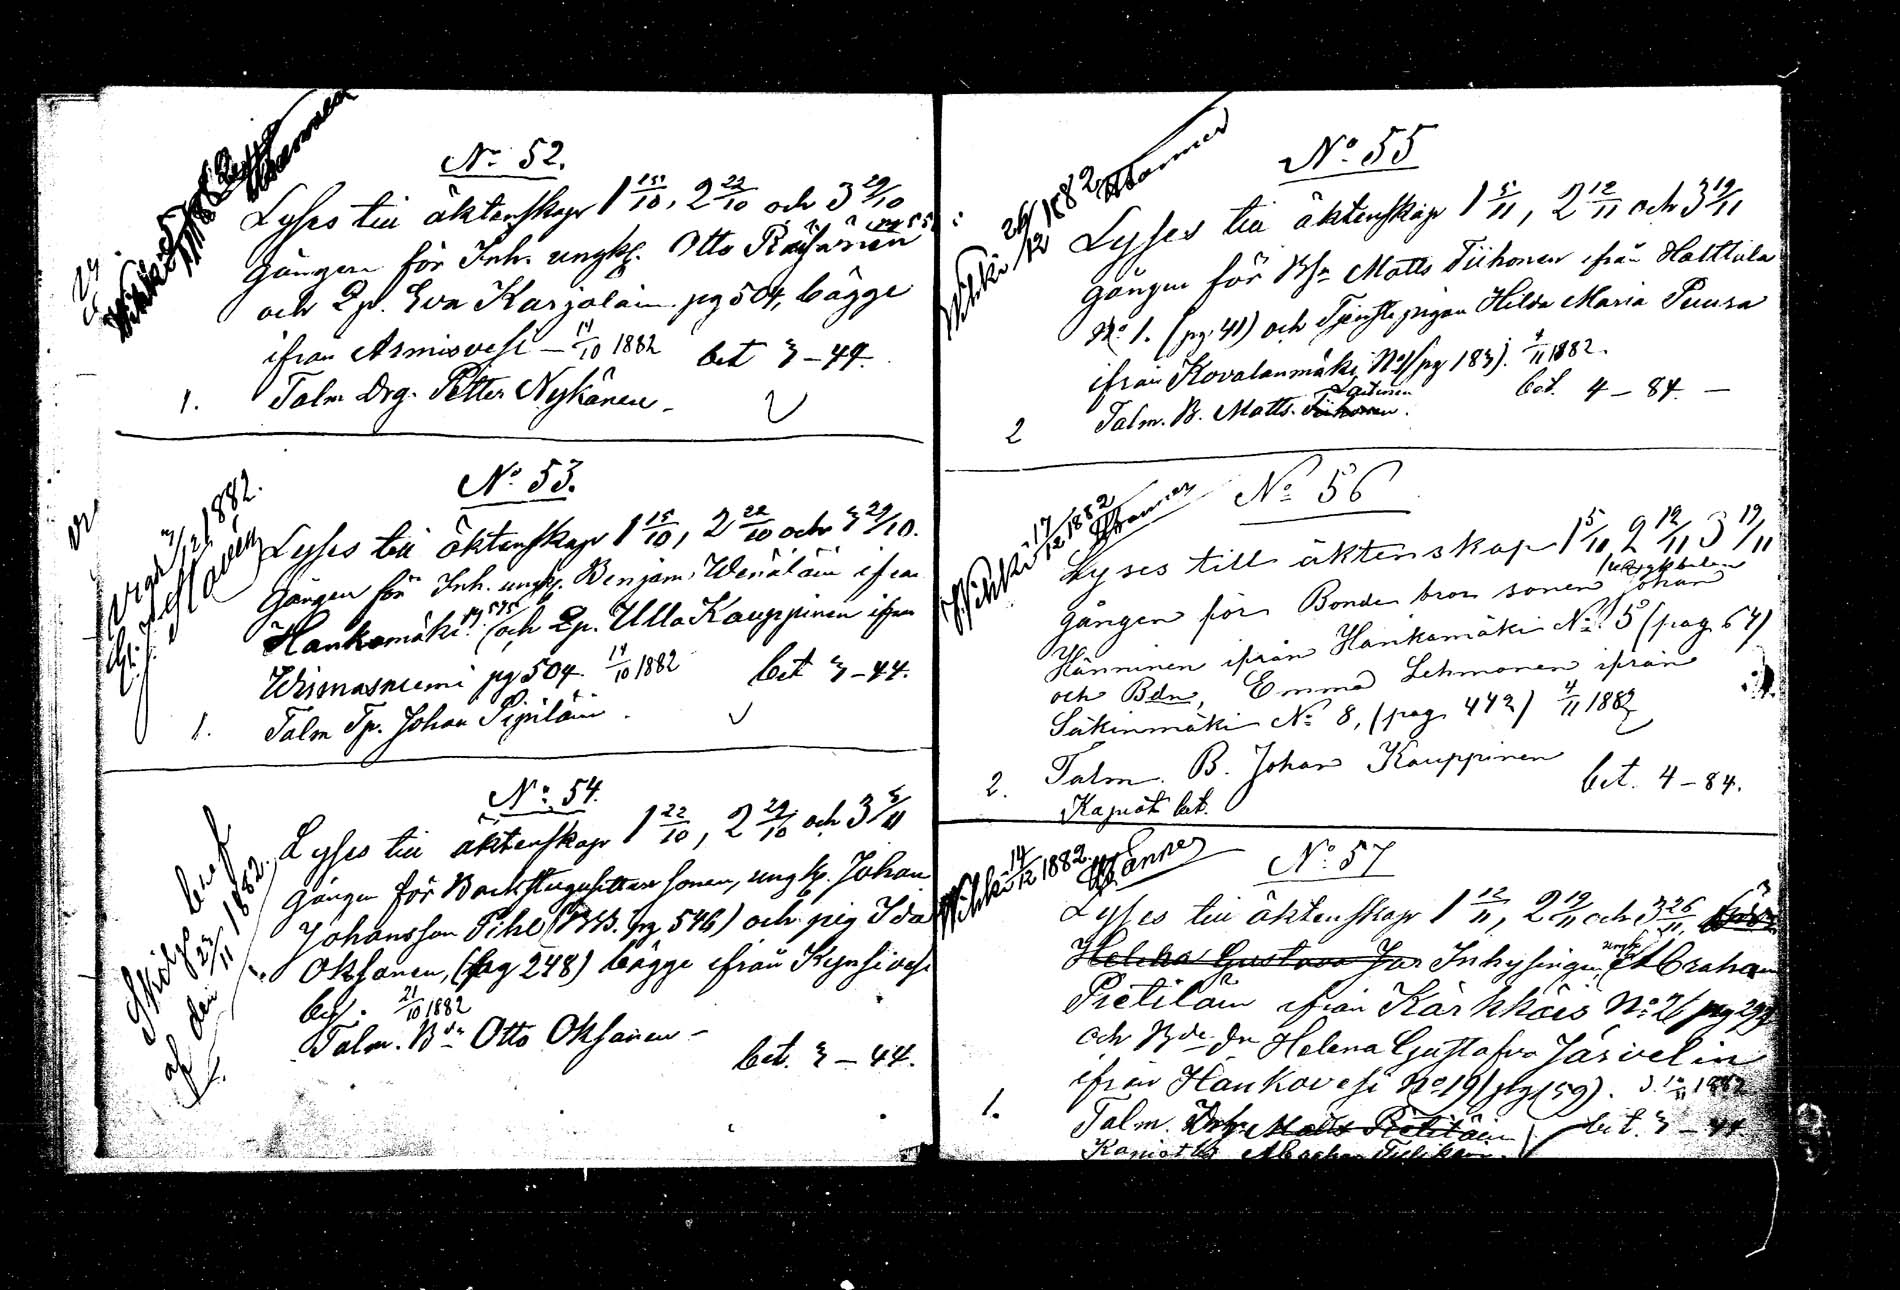 No 52.
Lyses till äktenskap 1 15/10, 2 22/10 och 3 29/10
gången för Inh. ungk. Otto Räsänen
och Qp. Eva Karjalain pg 504, bägge
ifrån Armisvesi – 14/10 1882 bet 3–44.
1. Talm Drg. Petter Nykänen –
No 53.
Vigde 7/12 1882.
Lyses till äktenskap 1 15/10, 2 22/10 och 3 29/10.
gången för Inh. ungk. Benjam. Wenäläin ifrån
Hankamäki (och Qp. Ulla Kauppinen ifrån
pg 504. 14/10 1882 bet 3–44.
1. Talm Tp. Johan Pipiläin.
No 54.
Skilgo bref
af den 23/11 1882.
Lyses till äktenskap 1 22/10, 2 29/10 och 3 5/11
gången för Backstugusittare sonen, ungk. Johan
Johansson Pihl (pg 546) och pig Ida
Oksanen, (pag 248) bägge ifrån Kynsivesi
21/10 1882
Talm. Bdn Otto Oksanen –
bet. 3–44.
No 55
Wihki 26/12 1882
Lyses till äktenskap 1 5/11, 2 12/11 och 3 19/11
gången för Bsn Matts Tiihonen ifrån Halttula
No 1. (pg. 41) och Tjenste pigan Hilda Maria Puura
ifrån Kovalanmäki No 1 (pg 183). 4/11 1882.
Talm. B. Matts. Tiihonen. bet. 4–84. –
2
No 56
Wihki 17/12 1882
Lyses till äktenskap 1 5/11, 2 12/11 3 19/11
gången för Bonde bror sonen Johan
Hänninen ifrån Hankamäki No 5 (pag 67)
och Bdn, Emma Lehmonen ifrån
Säkinmäki No 8, (pag 442) 4/11 1882
2. Talm. B. Johan Kauppinen bet. 4–84.
bet.
No 57
Wihki 14/12 1882.
Lyses till äktenskap 1 12/11, 2 19/11 och 3 26/11,
Helena Gustava Jär Inhysingen ungk Abraham
Pietiläin ifrån Kärkkäis No 2
och Bde dn Helena Gustafva Järvelin
ifrån Hankavesi No 19 (pg 159). 1882
1. Talm. Matts Pietiläin bet. 3–44